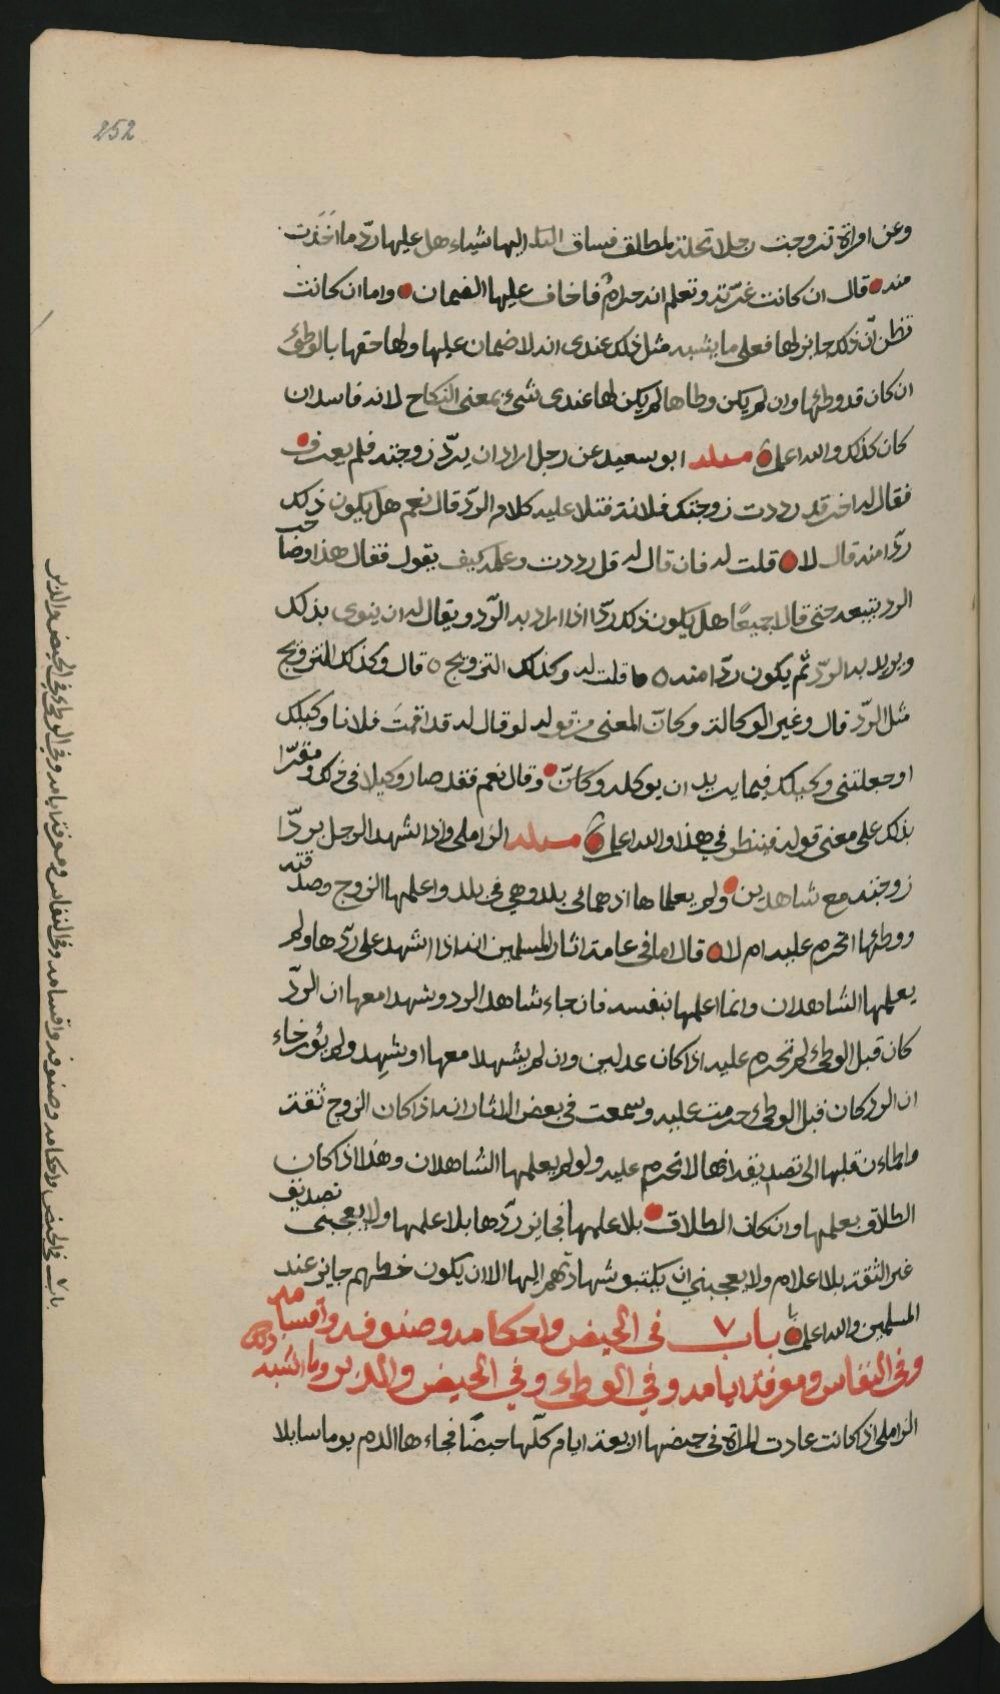 252
وعن امراة تزوجت رجلا تحلة لمطلق فساق اليها شياء هل عليها ردّ ما اخذت
منه قال ان كانت غرّته وتعلم انه حرام فاخاف عليها الضمان واما ان كانت
تظن انّ ذلك جايز لها فعلى ما يشبه مثل ذلك عندى انه لا ضمان عليها ولها حقها بالوطئ
ان كان قد وطئها وان لم يكن وطاها لم يكن لها عندى شىء بمعنى النكاح لانه فاسد ان
كان كذلك والله اعلم مسئله ابو سعيد عن رجل اراد ان يردّ زوجته فلم يعرف
فقال له اخر قد رددت زوجتك فلانة فتلا عليه كلام الردّ قال نعم هل يكون ذلك
ردّا منه قال لا قلت له فان قال له قل رددت وعلمه كيف يقول فقال هذا وصاحب
الرد يتبعه حتى قالا جميعًا هل يكون ذلك ردّا اذا اراد به الردّ ويقال له ان ينوى بذلك
ويريد به الردّ ثم يكون ردّا منه قلت له وكذلك التزويج قال وكذلك التزويج
مثل الردّ قال وغير الوكالة وكانّ المعنى من قوله لو قال له قد اقمتَ فلانا وكيلك
او جعلتنى وكيلك فيما يريد ان يوكله وكانّ وقال نعم فقد صار وكيلا فى ذلك ومقرّا
بذلك على معنى قوله فننظر في هذا والله اعلم مسئله الزاملى واذا اشهد الرجل بردّ
زوجته مع شاهدين ولم يعلماها اذ هما فى بلد وهي فى بلد واعلمها الزوج وصدقته
ووطئها اتحرم عليه ام لا قال اما فى عامة اثار المسلمين انه اذا اشهد على ردّها ولم
يعلمها الشاهدان وانما اعلمها بنفسه فان جاء شاهدا الرد وشهدا معها ان الردّ
كان قبل الوطئ لم تحرم عليه اذا كانا عدلين وان لم يشهدا معها او شهدا ولم يؤرخاء
ان الرد كان قبل الوطئ حرمت عليه وسمعت فى بعض الاثار انه اذا كان الزوج ثقة
واطماءن قلبها الى تصديقه انها لا تحرم عليه ولو لم يعلمها الشاهدان وهذا اذا كان
الطلاق بعلمها وان كان الطلاق بلا علمها فجايز ردّها بلا علمها ولا يعجبنى تصديق
غير الثقة بلا اعلام ولا يعجبني ان يكتبو شهادتهم اليها الا ان يكون خطهم جايز عند
المسلمين والله اعلم باب ٧ فى الحيض واحكامه وصنوفه واقسامه
وفى النفاس ومعرفة ايامه وفي الوطء وفي الحيض والدبر وما اشبه ذلك
الزاملى اذا كانت عادت المراة فى حيضها اربعة ايام كلّها حيضًا فجاءها الدم يوما سابلا
باب ٧ فى الحيض واحكامه وصنوفه واقسامه وفى النفاس ومعرفة ايامه وفى الوطء في الحيض والدبر